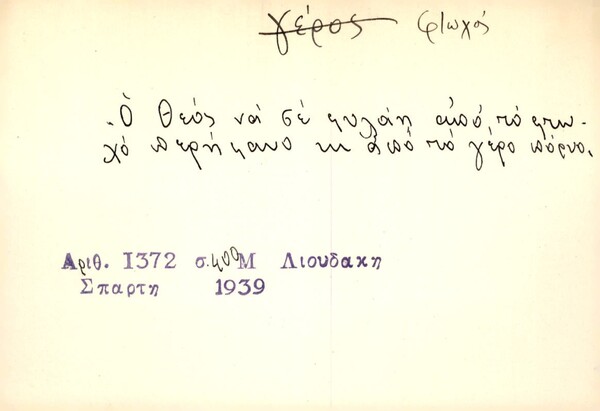 γέρος φτωχός
. Ὁ Θεός νά σέ φυλάῃ ἀπό τό φτω-
χό περήφανο κι ἀπό τό γέρο πόρνο.
Αριθ. 1372 σ. 400 Μ Λιουδακη
Σπαρτη 1939